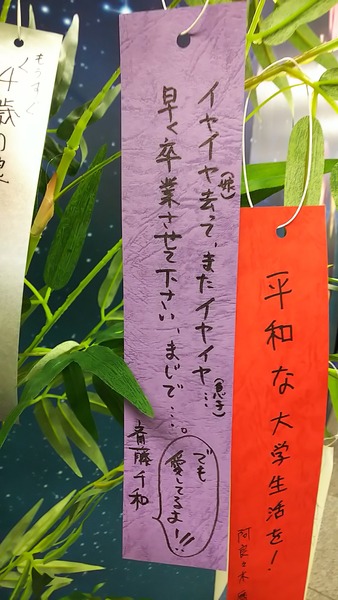 平和な大学生活を!
イヤイヤ(娘)去って、またイヤイヤ…(息子)
早く卒業させて下さい、まじで…。
でも
愛してるよ!!
斉藤千和
もうすぐ